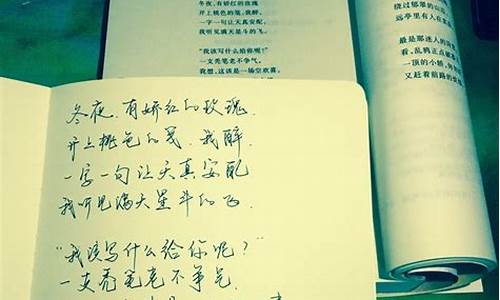 冬夜,有娇红的玫瑰
开上桃色的笺,我醉,
一字一句让天真安配
我听见满天星斗的飞。
"我该写什么给你呢?"
一支秃笔老不争气。
我想,这该是一场空欢喜。
绕过郁翠的山
远亭里有人在
最是那迷人的
看,乱鸦正点
一顶的小轿,
又赶着前路的
冬夜,有娇红的玫瑰
开上桃色的笺,我醉
一字一句让天真安配
我听见满天星斗的飞
"我该写什么给你呢?"
一支秃笔老不争气